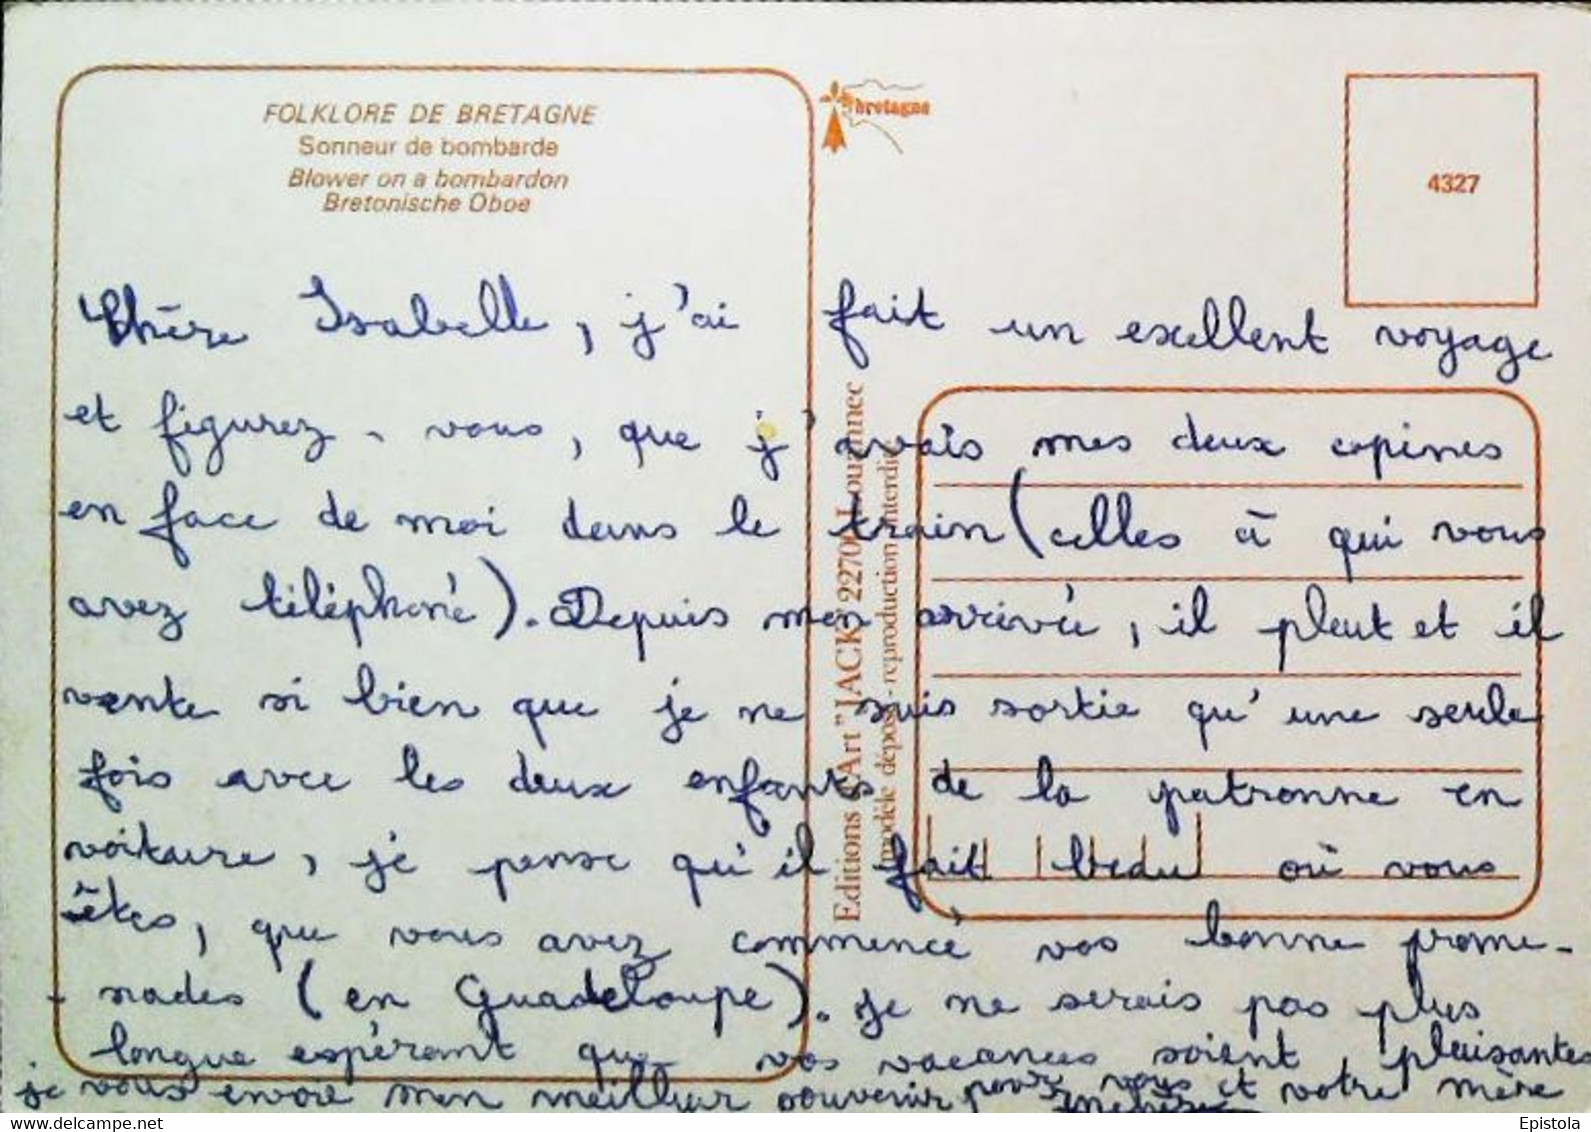 FOLKLORE DE BRETAGNE
Sonneur de bombarde
Blower on a bombardon
Bretonische Oboe
bretagne
4327
Chère Isabelle, j'ai fait un excellent voyage
et figurez-vous, que j'avais mes deux copines
en face de moi dans le train (celles à qui vous
avez téléphoné). Depuis mon arrivée, il pleut et il
vente si bien que je ne suis sortie qu'une seule
fois avec les deux enfants de la patronne en
voiture, je pense qu'il fait beau où vous
êtes, que vous avez commencé vos bonne prome-
-nades (en Guadeloupe). Je ne serais pas plus
longue espérant que vos vacances soient plaisantes
je vous envoie mon meilleur souvenir pour vous et votre mère
Editions d'Art "JACK" 22700 Louannec
modèle déposé - reproduction interdite
www.delcampe.net
Epistola